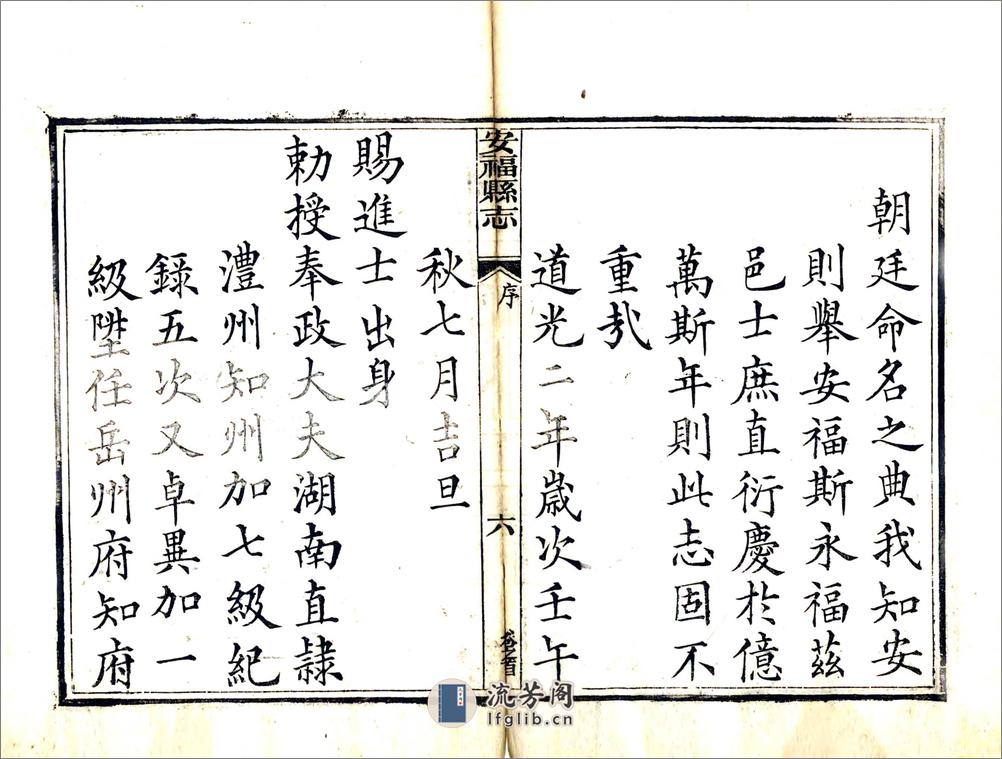 朝廷命名之典我知安
則舉安福斯永福茲
邑士庶直衍慶於億
萬斯年則此志固不
重㢤
道光二年歲次壬午
安福縣志
序
六
卷首
秋七月吉旦
賜進士出身
勅授奉政大夫湖南直隸
澧州知州加七級紀
錄五次又卓異加一
級陞任岳州府知府
流芳阁
lfglib.cn